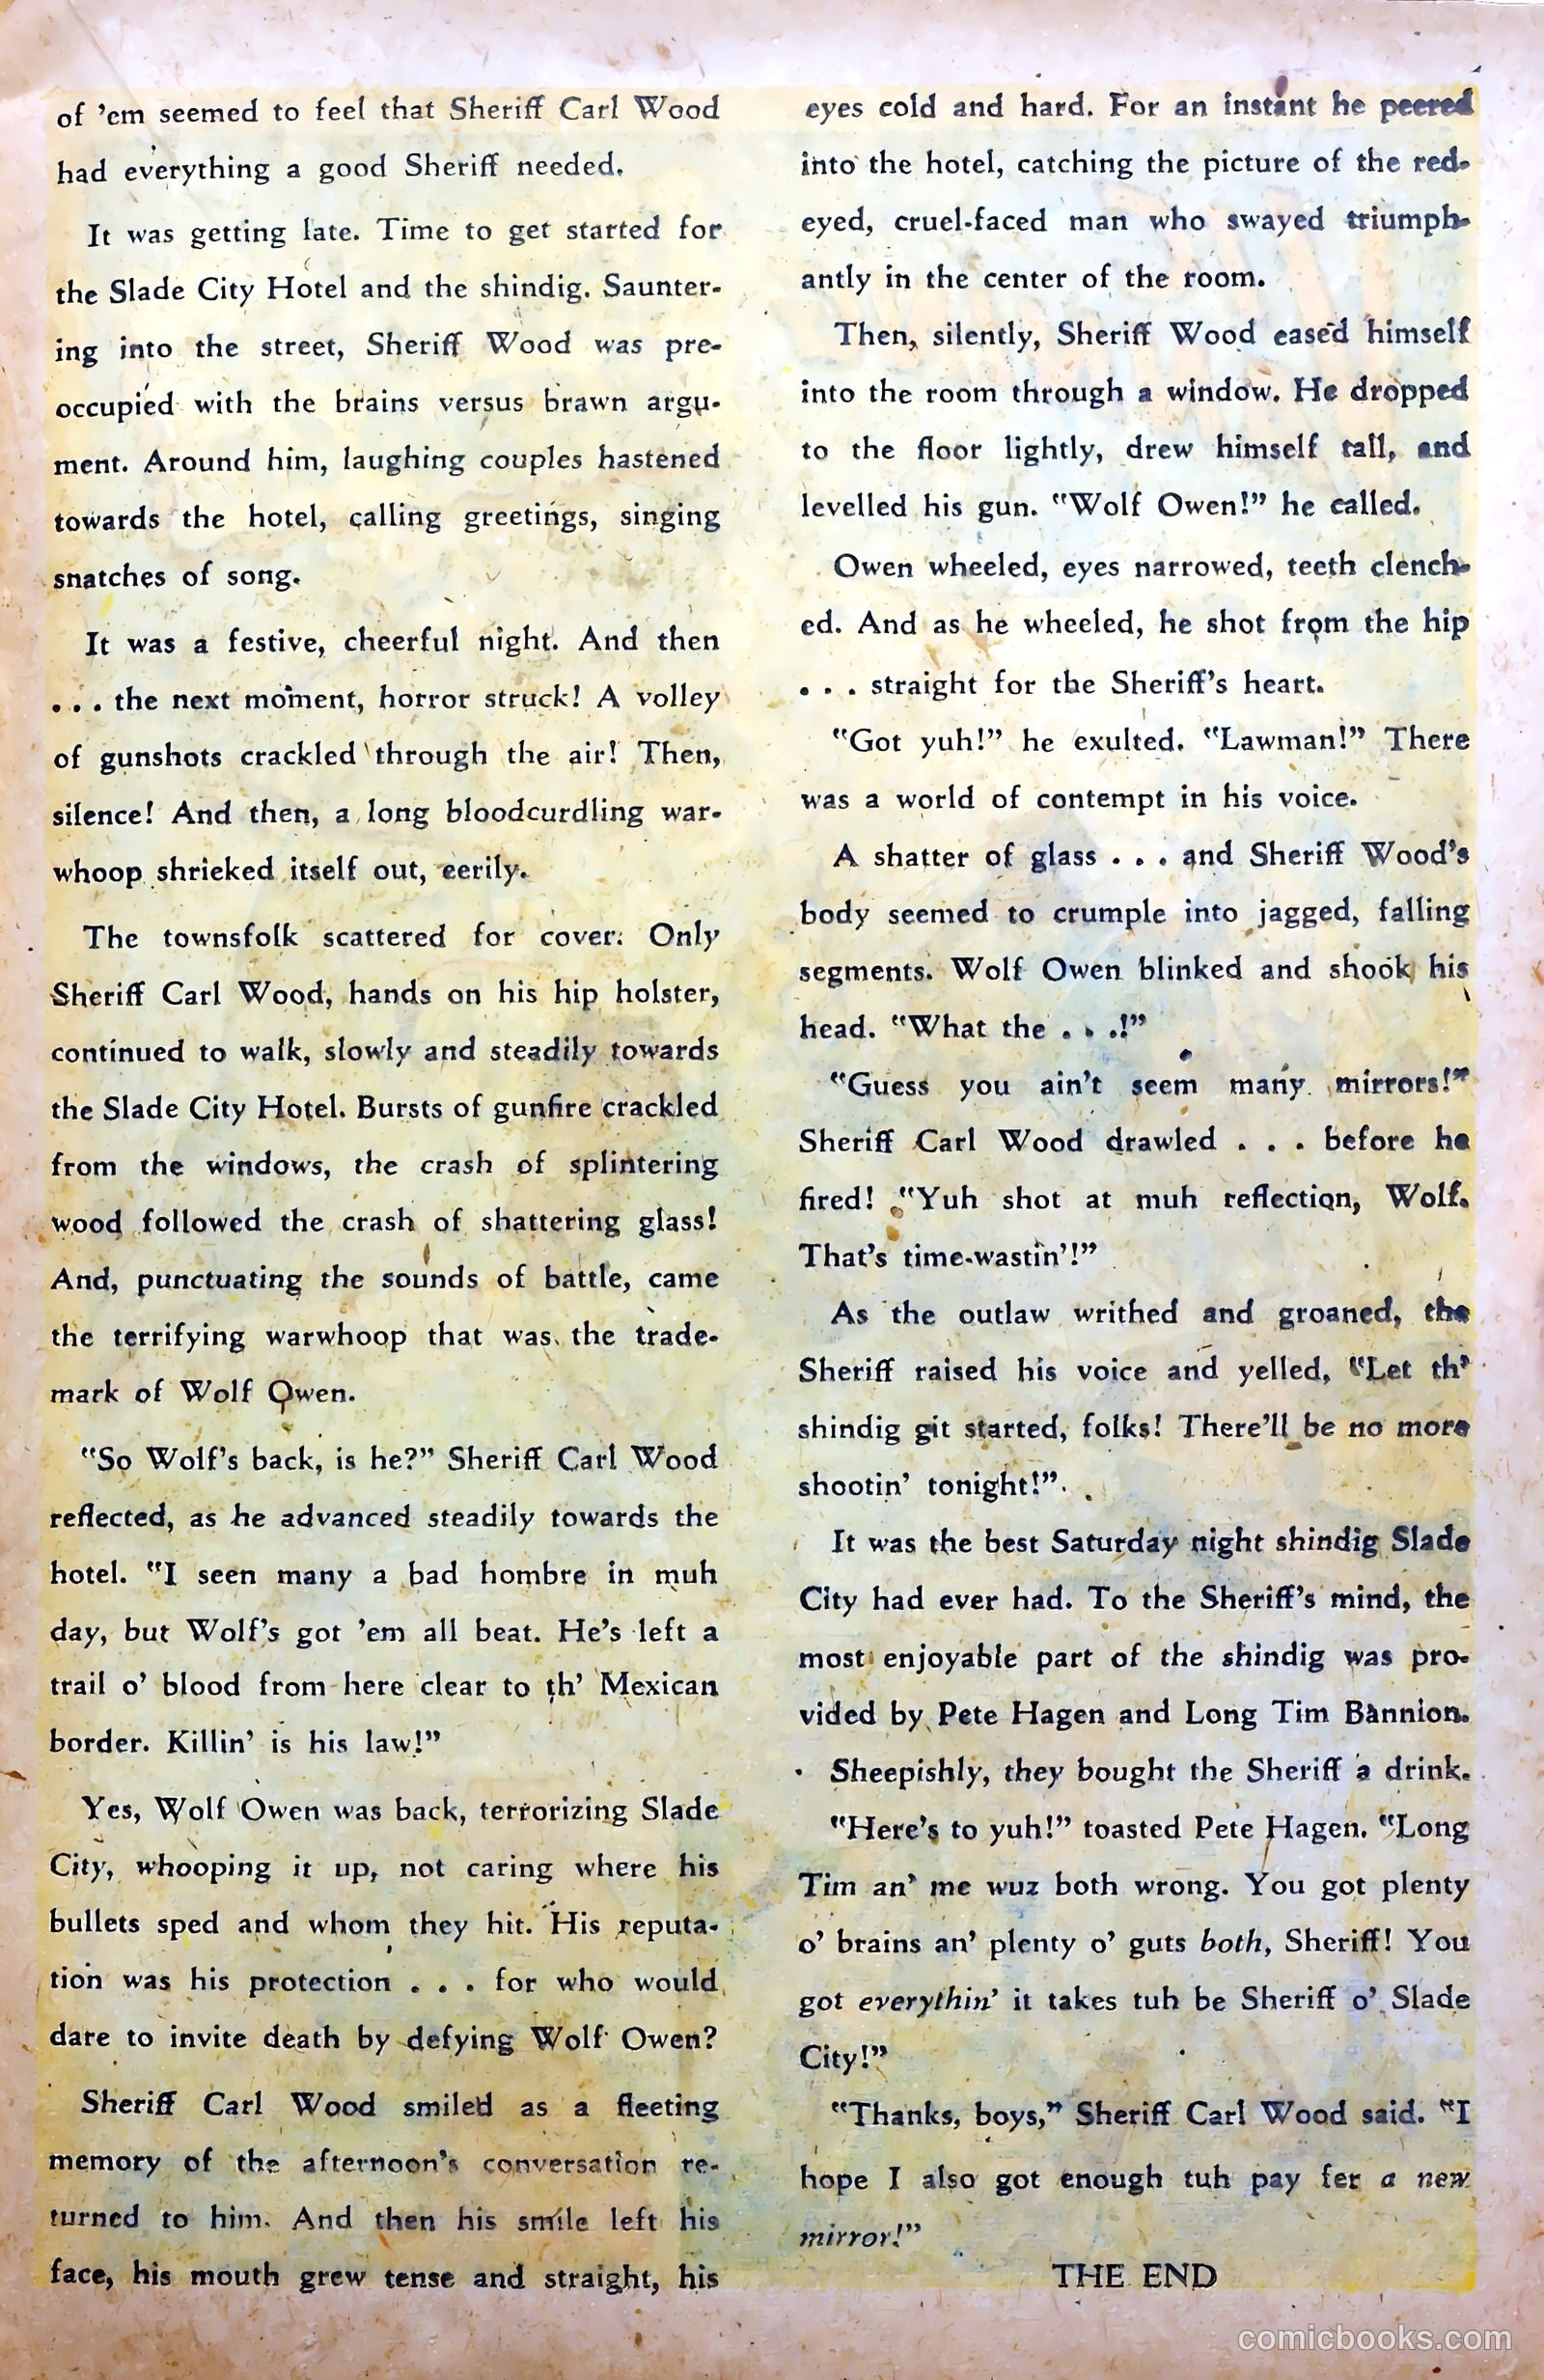 of 'em seemed to feel that Sheriff Carl Wood
had everything a good Sheriff needed.
It was getting late. Time to get started for
the Slade City Hotel and the shindig. Saunter-
ing into the street, Sheriff Wood was pre-
occupied with the brains versus brawn argu-
ment. Around him, laughing couples hastened
towards the hotel, calling greetings, singing
snatches of song.
It was a festive, cheerful night. And then
. . . the next moment, horror struck! A volley
of gunshots crackled through the air! Then,
silence! And then, a long bloodcurdling war-
whoop shrieked itself out, eerily.
The townsfolk scattered for cover. Only
Sheriff Carl Wood, hands on his hip holster,
continued to walk, slowly and steadily towards
the Slade City Hotel. Bursts of gunfire crackled
from the windows, the crash of splintering
wood followed the crash of shattering glass!
And, punctuating the sounds of battle, came
the terrifying warwhoop that was the trade-
mark of Wolf Owen.
"So Wolf's back, is he?" Sheriff Carl Wood
reflected, as he advanced steadily towards the
hotel. "I seen many a bad hombre in muh
day, but Wolf's got 'em all beat. He's left a
trail o' blood from here clear to th' Mexican
border. Killin' is his law!"
Yes, Wolf Owen was back, terrorizing Slade
City, whooping it up, not caring where his
bullets sped and whom they hit. His reputa-
tion was his protection . . . for who would
dare to invite death by defying Wolf Owen?
Sheriff Carl Wood smiled as a fleeting
memory of the afternoon's conversation re-
turned to him. And then his smile left his
face, his mouth grew tense and straight, his
eyes cold and hard. For an instant he peered
into the hotel, catching the picture of the red-
eyed, cruel-faced man who swayed triumph-
antly in the center of the room.
Then, silently, Sheriff Wood eased himself
into the room through a window. He dropped
to the floor lightly, drew himself tall, and
levelled his gun. "Wolf Owen!" he called.
Owen wheeled, eyes narrowed, teeth clench-
ed. And as he wheeled, he shot from the hip
. . . straight for the Sheriff's heart.
"Got yuh!" he exulted. "Lawman!" There
was a world of contempt in his voice.
A shatter of glass . . . and Sheriff Wood's
body seemed to crumple into jagged, falling
segments. Wolf Owen blinked and shook his
head. "What the . . .!"
"Guess you ain't seem many mirrors!"
Sheriff Carl Wood drawled . . . before he
fired! "Yuh shot at muh reflection, Wolf.
That's time-wastin'!"
As the outlaw writhed and groaned, the
Sheriff raised his voice and yelled, "Let th'
shindig git started, folks! There'll be no more
shootin' tonight!"
It was the best Saturday night shindig Slade
City had ever had. To the Sheriff's mind, the
most enjoyable part of the shindig was pro-
vided by Pete Hagen and Long Tim Bannion.
Sheepishly, they bought the Sheriff a drink.
"Here's to yuh!" toasted Pete Hagen. "Long
Tim an' me wuz both wrong. You got plenty
o' brains an' plenty o' guts both, Sheriff! You
got everythin' it takes tuh be Sheriff o' Slade
City!"
"Thanks, boys," Sheriff Carl Wood said. "I
hope I also got enough tuh pay fer a new
mirror!"
THE END
comicbooks.com